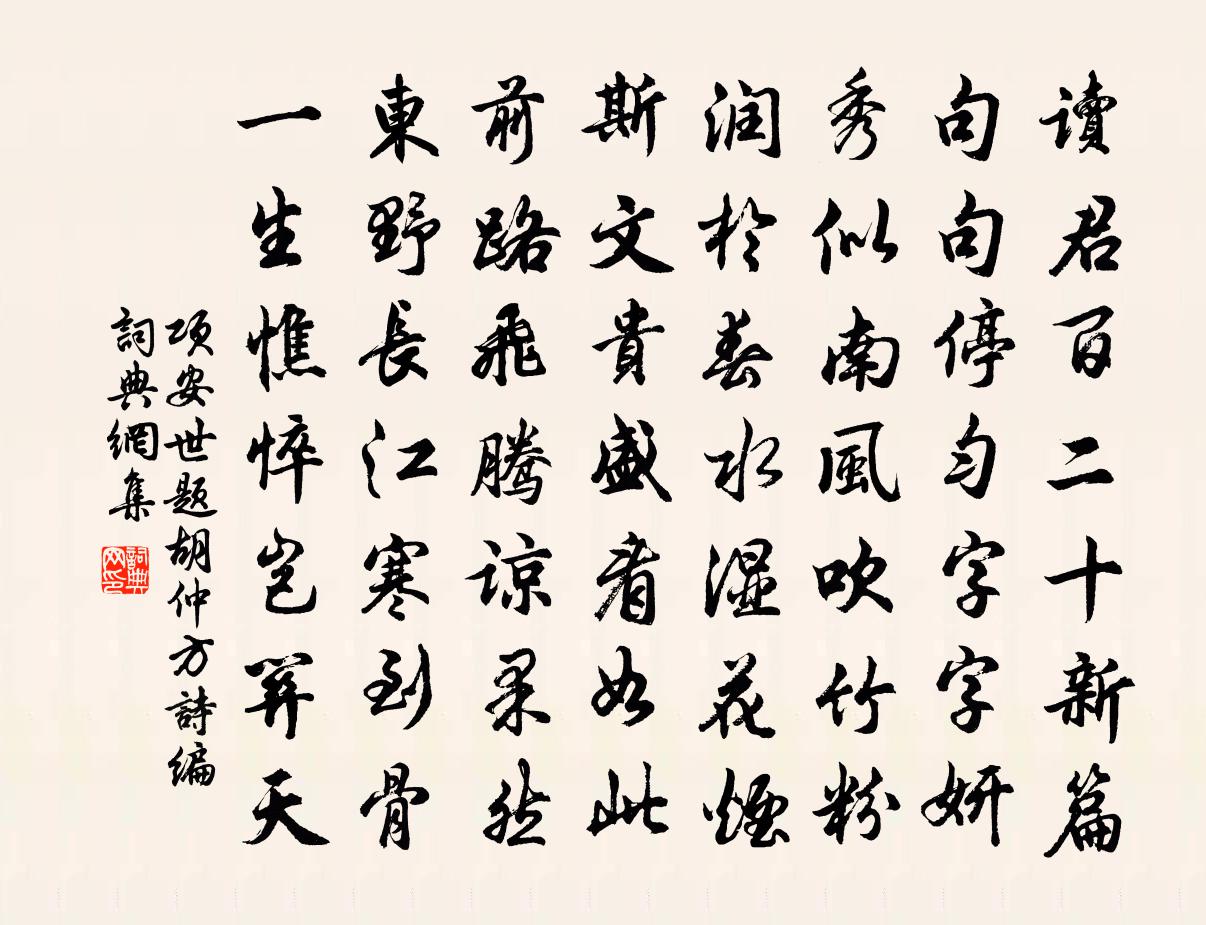 讀君百二十新篇
句句停勻字字妍
秀似南風吹竹粉
润於春水湿花煙
斯文貴盛看如此
前路飛騰諒果然
東野長江寒到骨
一生憔悴豈關天
项安世题胡仲方詩編
詞典網集
詞典网印